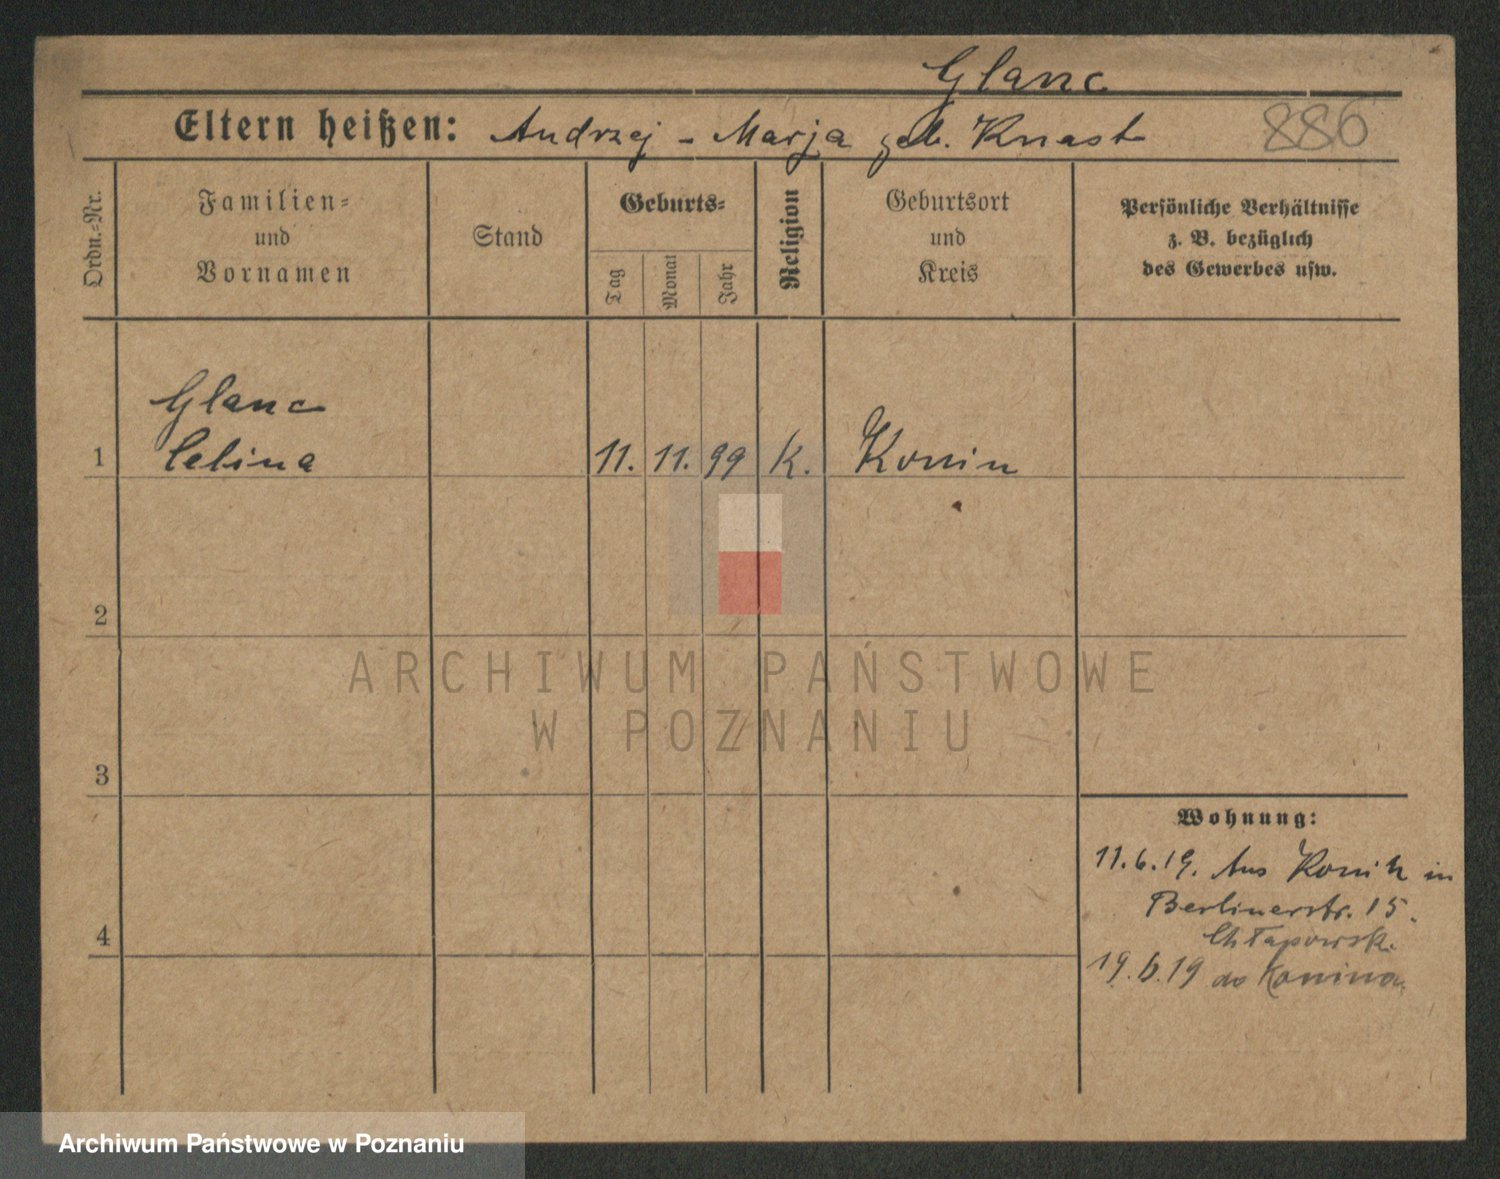 Glanc
Eltern heißen: Andrzej - Marja geb. Knast 886
Ordn.-Nr.
Familien-
und
Vornamen
Stand
Geburts-
Tag
Monat
Jahr
Religion
Geburtsort
und
Kreis
Persönliche Verhältnisse
z. B. bezüglich
des Gewerbes usw.
Glanc
1 Celina 11. 11. 99 K. Konin
2
ARCHIWUM PAŃSTWOWE
W POZNANIU
3
Wohnung:
11.6.19. Aus Konin in
Berlinerstr. 15.
Chłapowsk.
4
19.6.19 do Konina
Archiwum Państwowe w Poznaniu